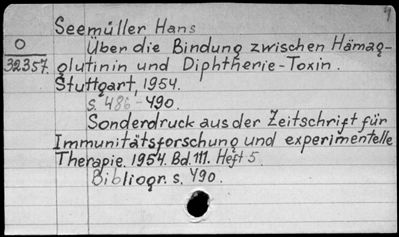 4
Seemüller Hans
O
32357.
Über die Bindung zwischen Hämag-
glutinin und Diphtherie-Toxin.
Stuttgart, 1954.
s. 486-490.
Sonderdruck aus der Zeitschrift für
Immunitätsforschung und experimentelle
Therapie. 1954. Bd. 111. Heft 5.
Bibliogr. s. 490.